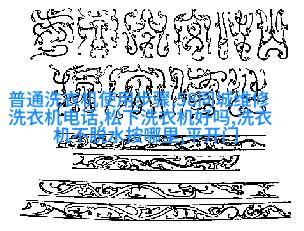 普通洗衣机使用步骤,58同城维修
洗衣机电话,松下洗衣机好吗,洗衣
机不脱水按哪里,平开门